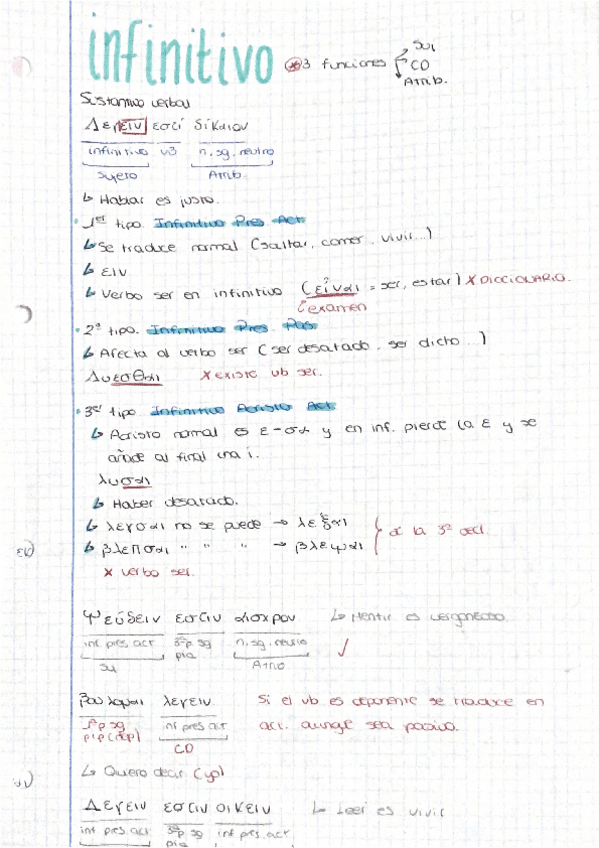 infinitivo *3 funciones Suj
CO
Atrib.
Sustantivo verbal
Λεγειν εστί δίκαιον
infinitivo v3 n.sg.neutro
Sujeto Atrib.
↳ Hablar es justo.
• 1er tipo. Infinitivo Pres Act
↳ Se traduce normal (saltar, comer, vivir...)
↳ ειν
↳ Verbo ser en infinitivo (εἶναι = ser, estar) X DICCIONARIO.
¿examen
• 2º tipo. Infinitivo Pres Pas
↳ Afecta al verbo ser (ser desatado, ser dicho...)
Λυεσθαι X existe vb ser.
• 3er tipo Infinitivo Aoristo Act
↳ Aoristo normal es ε-σα y en inf. pierde la ε y se
añade al final una i.
λυσαι
↳ Haber desatado.
↳ λεγσαι no se puede → λεξαι
↳ βλεπσαι " " " → βλεψαι } a la 3ª decl.
X verbo ser.
Ψεύδειν εστιν αισχρον ↳ Mentir es vergonzoso.
inf pres act 3ªp sg n.sg.neutro
pia Atrib
Su
βουλομαι λεγειν Si el vb es deponente se traduce en
1ªp sg inf pres act act. aunqe sea pasivo.
pip (dep) CD
↳ Quiero decir (yo)
Λεγειν εστιν οικειν ↳ Leer es vivir
inf pres act 3ªp sg inf pres act
pia